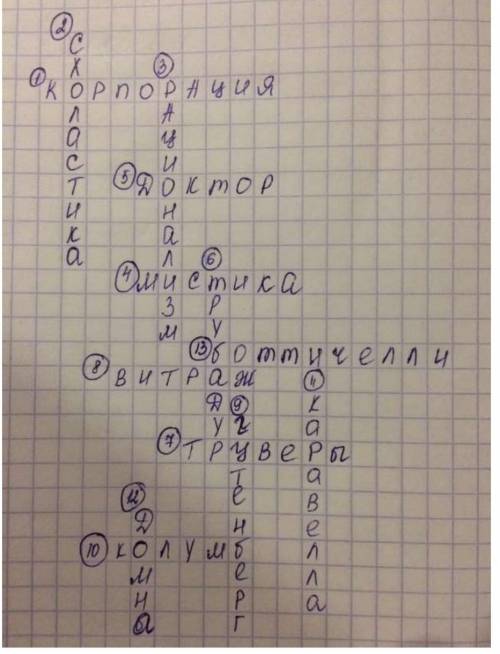 ② СХОЛАСТИКА
① КОРПОРАЦИЯ
③ РАЦИОНАЛИЗМ
⑤ ДОКТОР
④ МИСТИКА
⑥ ТРУБАДУР
⑬ БОТТИЧЕЛЛИ
⑧ ВИТРАЖ
⑪ КАРАВЕЛЛА
⑨ ГУТЕНБЕРГ
⑦ ТРУВЕРЫ
⑫ ДОМНА
⑩ КОЛУМБ